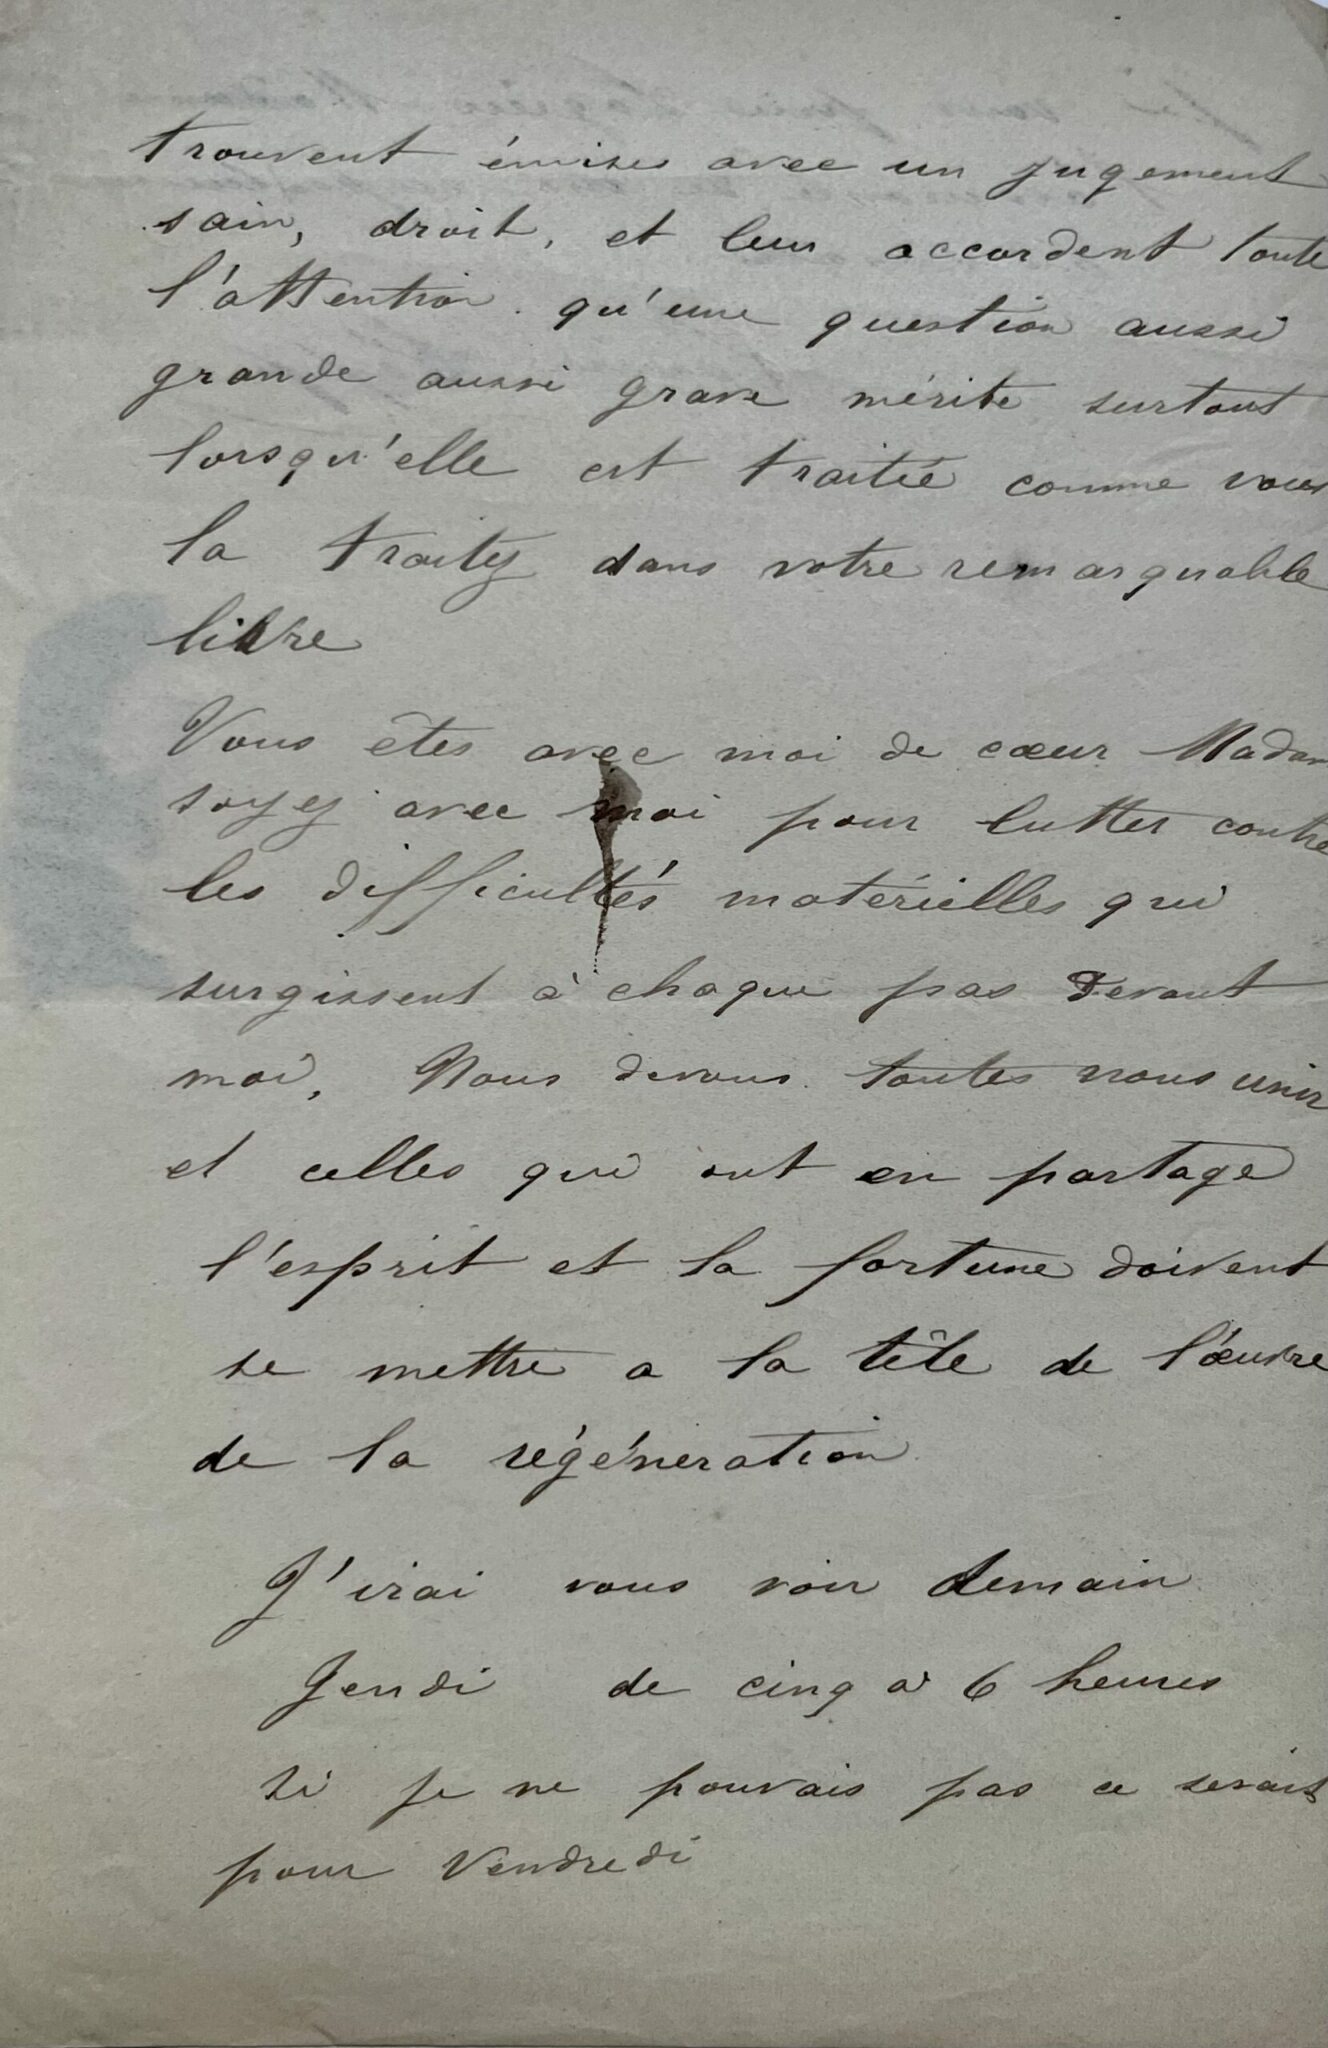 trouvent émises avec un jugement
sain, droit, et leur accordent toute
l'attention qu'une question aussi
grande aussi grave mérite surtout
lorsqu'elle est traitée comme vous
la traitez dans votre remarquable
livre
Vous êtes avec moi de cœur Madam
soyez avec moi pour lutter contre
les difficultés matérielles qui
surgissent à chaque pas devant
moi, Nous devons toutes nous unir
et celles qui ont en partage
l'esprit et la fortune doivent
se mettre a la tête de l'œuvre
de la régéneration
J'irai vous voir demain
Jeudi de cinq à 6 heures
si je ne pouvais pas ce serait
pour Vendredi